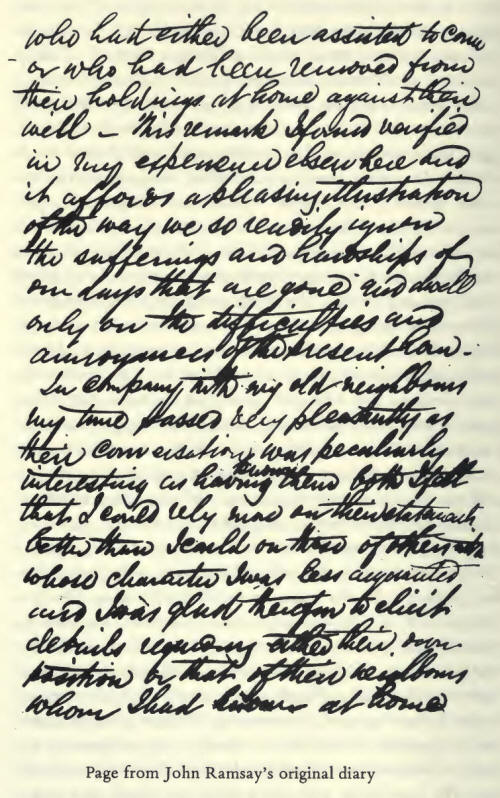 who had either been assisted to come
or who had been removed from
their holdings at home against their
will – This remark I found verified
in my experience elsewhere and
it affords a pleasing illustration
of the way we so readily ignore
the sufferings and hardships of
our days that are gone and dwell
only on the difficulties and
annoyances of the present hour.
In company with my old neighbours
my time passed very pleasantly as
their conversation was peculiarly
interesting as having known them both I felt
that I could rely more on their statements
better than I could on those of others
whose character I was less acquainted
and I was glad therefore to elicit
details regarding either their own
position or that of their neighbours
whom I had known at home
Page from John Ramsay's original diary